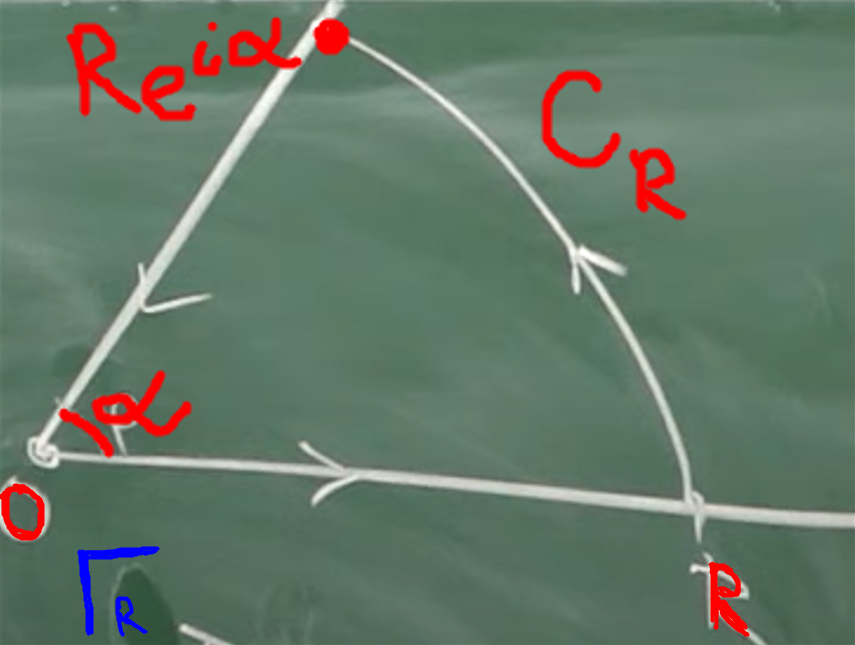 Re^{iα}
C_R
α
O
R
Γ_R